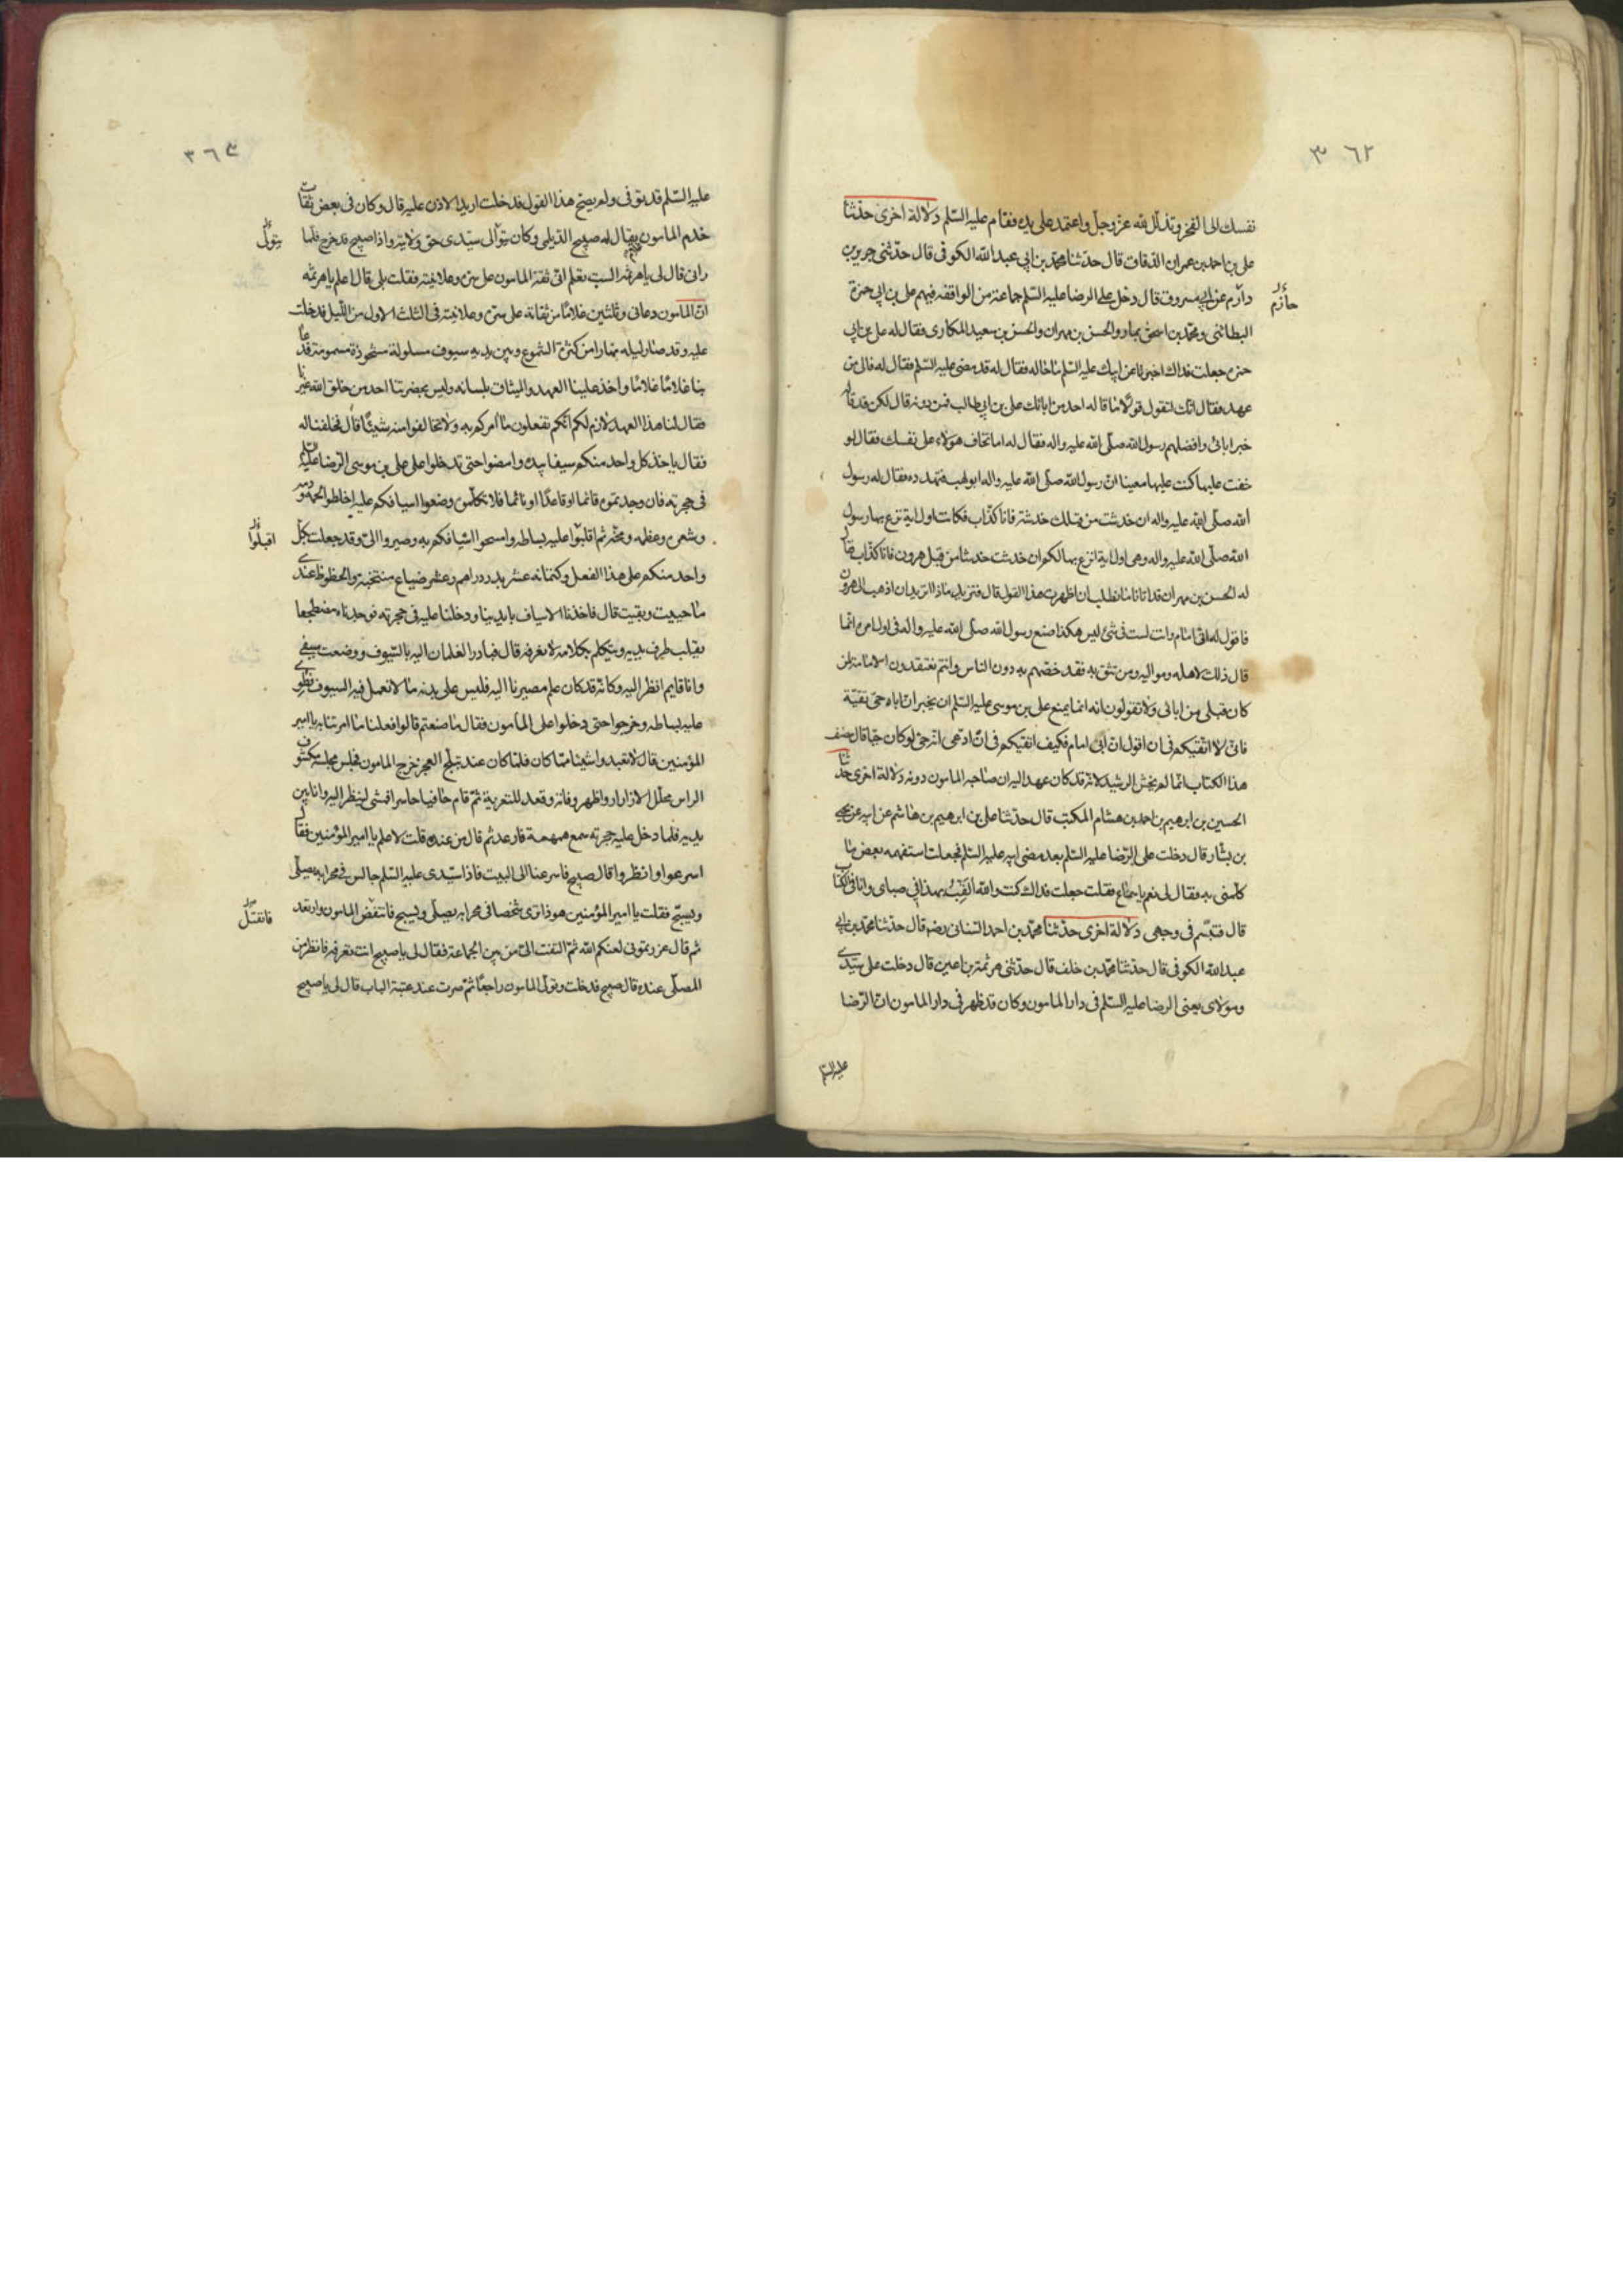 ٣٦٢
نفسك الى الفخر وتذلل لله عز وجل واعتمد على يده فقام عليه السلم دلالة اخرى حدثنا
على بن احمد بن عمران الدقاق قال حدثنا محمد بن ابى عبد الله الكوفى قال حدثنى جرير بن
دارم عن ابى مسروق قال دخل على الرضا عليه السلم جماعة من الواقفة فيهم على بن ابى حمزة
حازم
البطائنى ومحمد بن اسحق بن عمار والحسن بن مهران والحسن بن سعيد المكارى فقال له على بن ابى
حمزة جعلت فداك اخبرنا عن ابيك عليه السلم ما حاله فقال له قد مضى عليه السلم فقال له فالى من
عهد فقال الىّ فقال انك لتقول قولا ما قاله احد من ابائك على بن ابى طالب فمن دونه قال لكن قد قاله
خير ابائى وافضلهم رسول الله صلى الله عليه واله فقال له اما تخاف هولاء على نفسك فقال لو
خفت عليها كنت عليها معينا ان رسول الله صلى الله عليه واله اتاه ابو لهب فتهدده فقال له رسول
الله صلى الله عليه واله ان خدشت من قبلك خدشة فانا كذاب فكانت اول اية نزع بها رسول
الله صلى الله عليه واله وهى اول اية انزع بها لكم ان خدشت خدشا من قبل هرون فانا كذاب فقال
له الحسن بن مهران قد اتانا ما نطلب ان اظهرت هذا القول قال فتريد ماذا اتريد ان اذهب الى هرون
فاقول له انى امام وانت لست فى شئ ليس هكذا صنع رسول الله صلى الله عليه واله فى اول امره انما
قال ذلك لاهله ومواليه ومن يثق به فقد خصهم به دون الناس وانتم تعتقدون الامامة لمن
كان قبلى من ابائى ولا تقولون انه انما يمنع على بن موسى عليه السلم ان يخبر ان اباه حى تقية
فانى لا اتقيكم فى ان اقول انى امام فكيف اتقيكم فى ان ادعى انه حى لو كان حيا قال مصنف
هذا الكتاب انما لم يخش الرشيد لانه قد كان عهد اليه ان صاحبه المامون دونه دلالة اخرى حدثنا
الحسين بن ابرهيم بن احمد بن هشام المكتب قال حدثنا على بن ابرهيم بن هاشم عن ابيه عن يحيى
بن بشار قال دخلت على الرضا عليه السلم بعد مضى ابيه عليه السلم فجعلت استفهمه بعض ما
كلمنى به فقال لى نعم يا سماع فقلت جعلت فداك كنت والله القب بهذا فى صباى وانا فى الكتاب
قال فتبسم فى وجهى دلالة اخرى حدثنا محمد بن احمد السنانى رضه قال حدثنا محمد بن ابى
عبد الله الكوفى قال حدثنا محمد بن خلف قال حدثنى هرثمة بن اعين قال دخلت على سيدى
ومولاى يعنى الرضا عليه السلم فى دار المامون وكان قد ظهر فى دار المامون ان الرضا
عليه السلم
٣٦٣
عليه السلم قد توفى ولم يصح هذا القول فدخلت اريد الاذن عليه قال وكان فى بعض ثقات
خدم المامون يقال له صبيح الديلمى وكان يتوالى سيدى حق ولايته واذا صبيح قد خرج فلما
يتول
رانى قال لى يا هرثمة الست تعلم انى ثقة المامون على سره وعلانيته فقلت بلى قال اعلم يا هرثمة
ان المامون دعانى وثلثين غلاما من ثقاته على سره وعلانيته فى الثلث الاول من الليل فدخلت
عليه وقد صار ليله نهارا من كثرة الشموع وبين يديه سيوف مسلولة مشحوذة مسمومة فدعا
بنا غلاما غلاما واخذ علينا العهد والميثاق بلسانه وليس بحضرتنا احد من خلق الله غيرنا
فقال لنا هذا العهد لازم لكم انكم تفعلون ما آمركم به ولا تخالفوا منه شيئا قال فحلفنا له
فقال ياخذ كل واحد منكم سيفا بيده وامضوا حتى تدخلوا على على بن موسى الرضا عليه السلم
فى حجرته فان وجدتموه قائما او قاعدا او نائما فلا تكلموه وضعوا اسيافكم عليه واخلطوا لحمه ودمه
وشعره وعظمه ومخه ثم اقلبوا عليه بساطه وامسحوا اسيافكم به وصيروا الىّ وقد جعلت لكل
اقبلوا
واحد منكم على هذا الفعل وكتمانه عشر بدر دراهم وعشر ضياع منتخبة والحظوظ عندى
ما حييت وبقيت قال فاخذنا الاسياف بايدينا ودخلنا عليه فى حجرته فوجدناه مضطجعا
يقلب طرف يديه ويتكلم بكلام لا نعرفه قال فبادر الغلمان اليه بالسيوف ووضعت سيفى
وانا قايم انظر اليه وكانه قد كان علم مصيرنا اليه فلبس على بدنه ما لا تعمل فيه السيوف فطووا
عليه بساطه وخرجوا حتى دخلوا على المامون فقال ما صنعتم قالوا فعلنا ما امرتنا به يا امير
المؤمنين قال لا تعيدوا شيئا مما كان فلما كان عند تبلج الفجر خرج المامون فجلس مجلسه مكشوف
الراس محلل الازرار واظهر وفاته وقعد للتعزية ثم قام حافيا حاسرا فمشى لينظر اليه وانا بين
يديه فلما دخل عليه حجرته سمع همهمة فارعد ثم قال من عنده قلت لا علم يا امير المؤمنين فقال
اسرعوا وانظروا قال صبيح فاسرعنا الى البيت فاذا سيدى عليه السلم جالس فى محرابه يصلى
ويسبح فقلت يا امير المؤمنين هو ذا نرى شخصا فى محرابه يصلى ويسبح فانتفض المامون وارتعد
فانفتل
ثم قال غررتمونى لعنكم الله ثم التفت الىّ من بين الجماعة فقال لى يا صبيح انت تعرفه فانظر من
المصلى عنده قال صبيح فدخلت وتولى المامون راجعا ثم صرت عند عتبة الباب قال لى يا صبيح